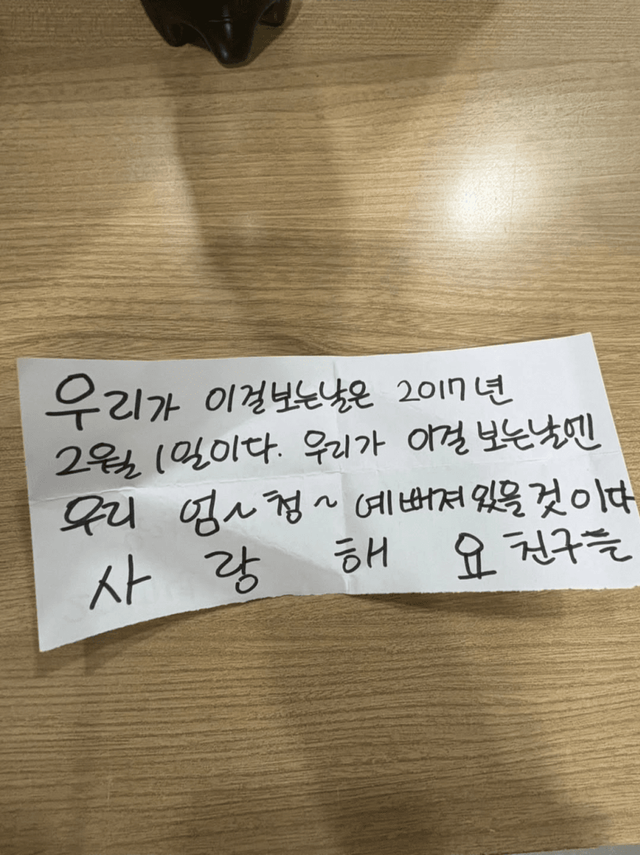 우리가 이걸보는날은 2017년
2월 1일이다. 우리가 이걸 보는날엔
우리 엄~청~ 예뻐져있을것이다
사 랑 해 요 친구들